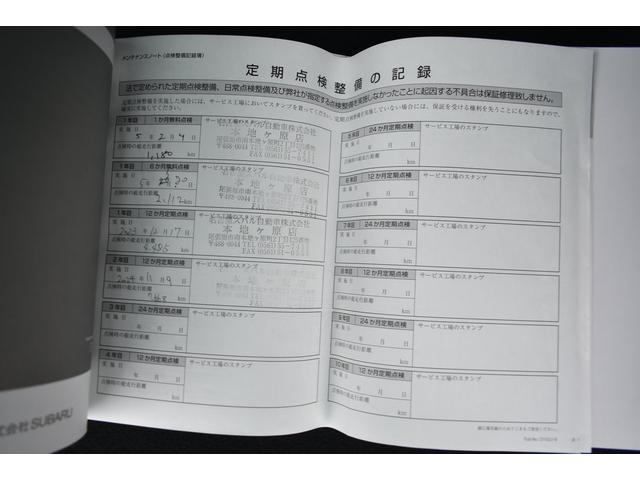 メンテナンスノート(点検整備記録簿)
定期点検整備の記録
法で定められた定期点検整備、日常点検整備及び弊社が指定する点検整備を実施しなかったことに起因する不具合は保証修理致しません。
定期点検整備を実施した場合には、サービス工場においてスタンプを貰ってください。定期点検整備を実施していない場合には、保証を受ける権利を失うことにもなりますので、
確実に実施してください。
1か月無料点検
サービス工場のスタンプ
実施日
5年2月4日
点検時の総走行距離
km
本地ヶ原店
1年目 6か月無料点検
サービス工場のスタンプ
実施日
点検時の総走行距離
2,112 km
本地ヶ原店
1年目 12か月定期点検
サービス工場のスタンプ
実施日
2023年12月17日
点検時の総走行距離
km
名古屋スバル自動車株式会社
本地ヶ原店
2年目 12か月定期点検
サービス工場のスタンプ
実施日
2024年11月9日
点検時の総走行距離
km
本地ヶ原店
3年目 24か月定期点検
サービス工場のスタンプ
実施日
年 月 日
点検時の総走行距離
km
4年目 12か月定期点検
サービス工場のスタンプ
実施日
年 月 日
点検時の総走行距離
km
5年目 24か月定期点検
サービス工場のスタンプ
実施日
年 月 日
点検時の総走行距離
km
6年目 12か月定期点検
サービス工場のスタンプ
実施日
年 月 日
点検時の総走行距離
km
7年目 24か月定期点検
サービス工場のスタンプ
実施日
年 月 日
点検時の総走行距離
km
8年目 12か月定期点検
サービス工場のスタンプ
実施日
年 月 日
点検時の総走行距離
km
9年目 24か月定期点検
サービス工場のスタンプ
実施日
年 月 日
点検時の総走行距離
km
10年目 12か月定期点検
サービス工場のスタンプ
実施日
年 月 日
点検時の総走行距離
km
式会社 SUBARU